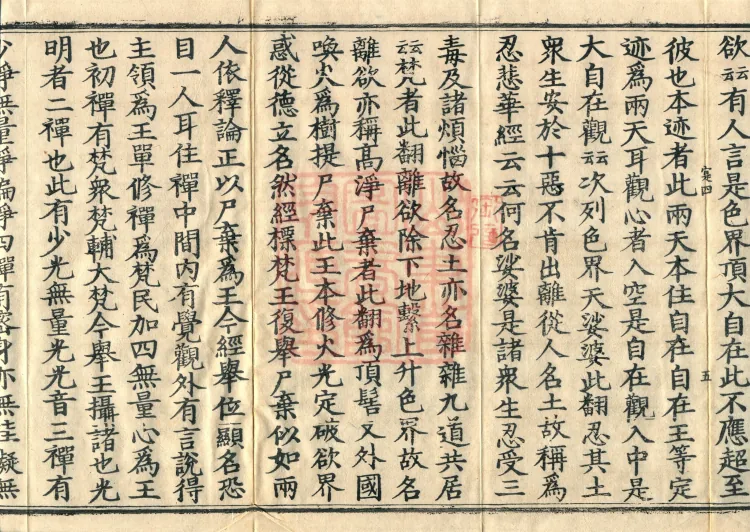 欲云云有人言是色界頂大自在此不應超至
彼也本迹者此兩天本住自在自在王等定
迹為兩天耳觀心者入空是自在觀入中是
大自在觀云云次列色界天娑婆此翻忍其土
衆生安於十惡不肯出離從人名土故稱為
忍悲華經云云何名娑婆是諸衆生忍受三
毒及諸煩惱故名忍土亦名雜雜九道共居
云云梵者此翻離欲除下地繫上升色界故名
離欲亦稱髙淨尸棄者此翻為頂髻又外國
喚火為樹提尸棄此王本修火光定破欲界
惑從德立名然經標梵王復舉尸棄似如兩
人依釋論正以尸棄為王今經舉位顯名恐
目一人耳住禪中間内有覺觀外有言說得
主領為王單修禪為梵民加四無量心為王
也初禪有梵衆梵輔大梵今舉王攝諸也光
明者二禪也此有少光無量光光音三禪有
少淨無量淨徧淨四禪有密身亦無挂礙無
寘四
五